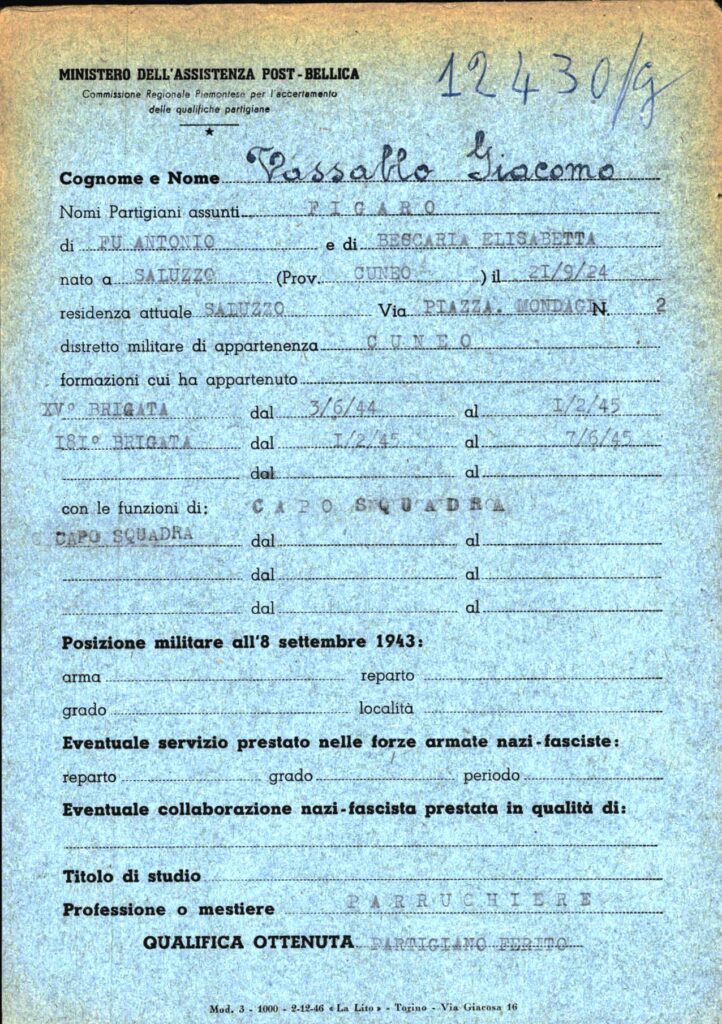 12430/g
MINISTERO DELL'ASSISTENZA POST-BELLICA
Commissione Regionale Piemontese per l'accertamento
delle qualifiche partigiane
Cognome e Nome Vassallo Giacomo
Nomi Partigiani assunti FIGARO
di FU ANTONIO e di BESCARIA ELISABETTA
nato a SALUZZO (Prov. CUNEO ) il 21/9/24
residenza attuale SALUZZO Via PIAZZA. MONDAGLI N. 2
distretto militare di appartenenza CUNEO
formazioni cui ha appartenuto
XV° BRIGATA dal 3/6/44 al 1/2/45
181° BRIGATA dal 1/2/45 al 7/6/45
dal al
con le funzioni di: CAPO SQUADRA
CAPO SQUADRA dal al
dal al
dal al
Posizione militare all'8 settembre 1943:
arma reparto
grado località
Eventuale servizio prestato nelle forze armate nazi-fasciste:
reparto grado periodo
Eventuale collaborazione nazi-fascista prestata in qualità di:
Titolo di studio
Professione o mestiere PARRUCHIERE
QUALIFICA OTTENUTA PARTIGIANO FERITO
Mod. 3 - 1000 - 2-12-46 « La Lito » - Torino - Via Giacosa 16